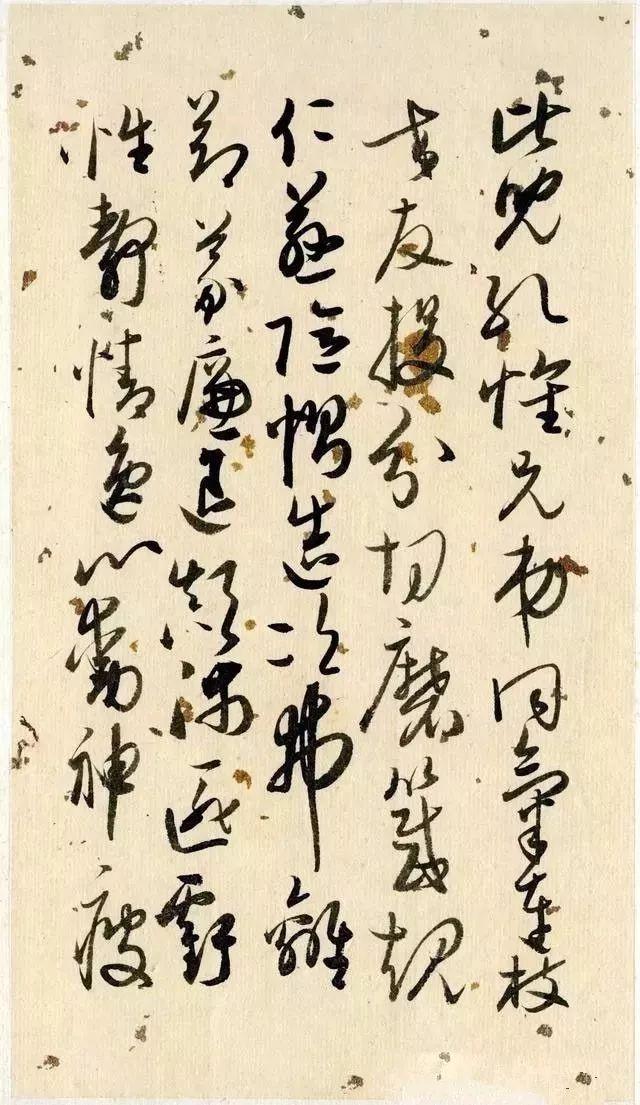 比兒孔懷兄弟同氣連枝
交友投分切磨箴規
仁慈隱惻造次弗離
節義廉退顛沛匪虧
性靜情逸心動神疲